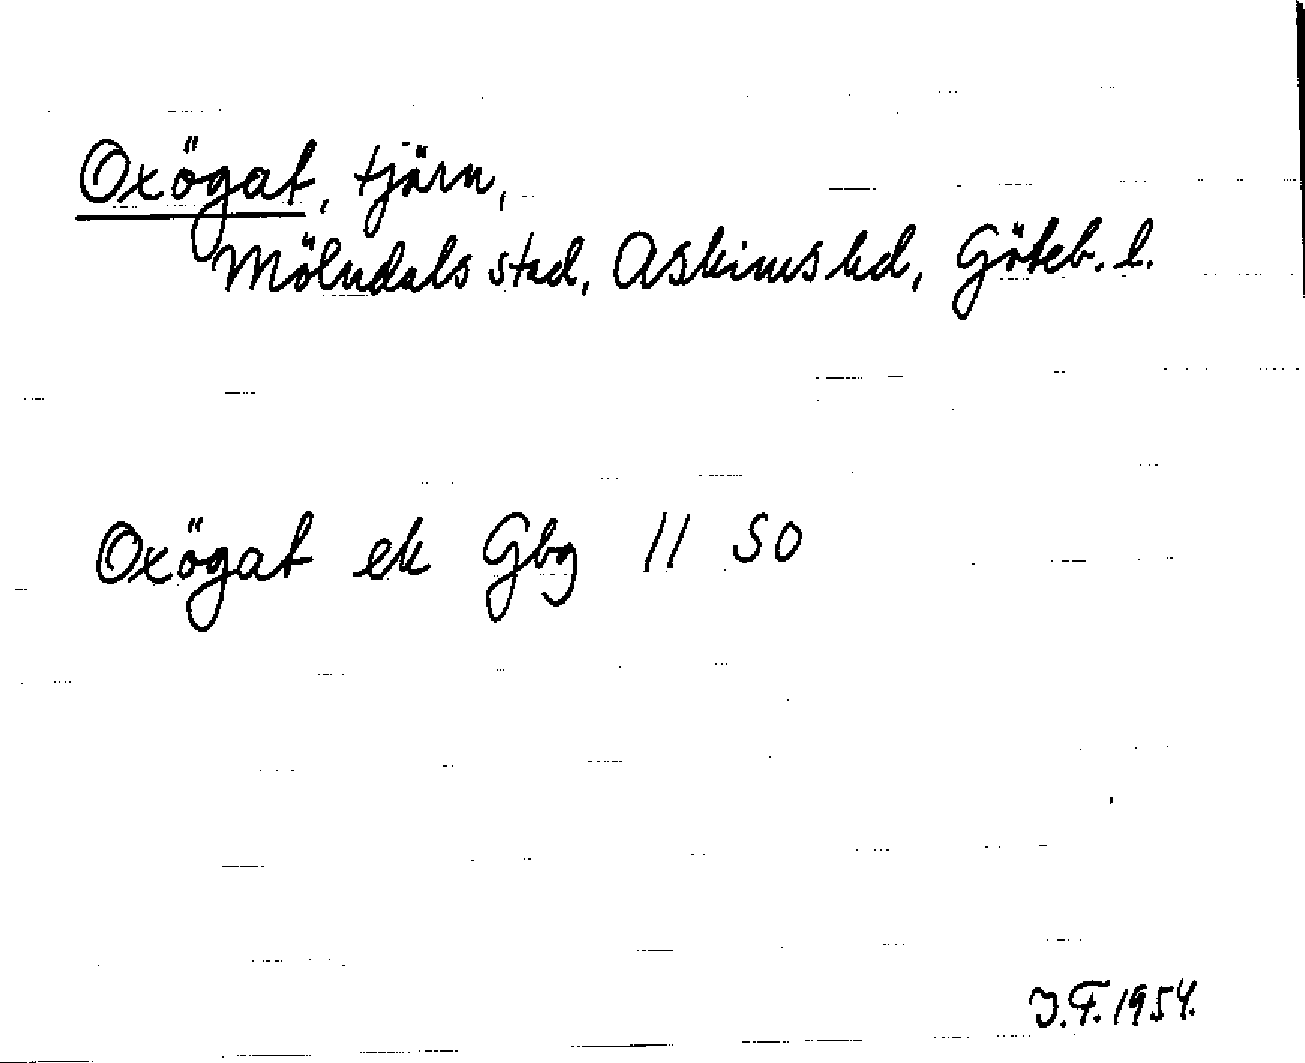 Oxögat, tjärn,
Mölndals stad, Askims hd, Göteb. l.
Oxögat ek Gbg 11 SO
J.F. 1954.